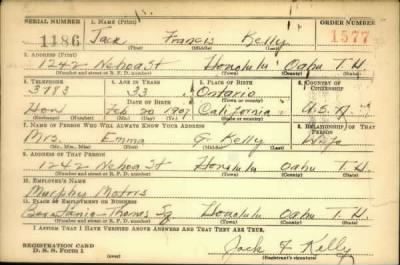 SERIAL NUMBER 1. NAME (Print) ORDER NUMBER
1486 Jack Francis Kelly 1577
(First) (Middle) (Last)
2. ADDRESS (Print)
1242 Nehoa St Honolulu Oahu T.H.
(Number and street or R. F. D. number) (Town) (County) (State)
3. TELEPHONE 4. AGE IN YEARS 5. PLACE OF BIRTH 6. COUNTRY OF CITIZENSHIP
3783 33 Ontario
DATE OF BIRTH (Town or county)
Hon Feb 20 1907 California U.S.A.
(Exchange) (Mo.) (Day) (Yr.) (State or country)
7. NAME OF PERSON WHO WILL ALWAYS KNOW YOUR ADDRESS 8. RELATIONSHIP OF THAT PERSON
Mrs Emma Kelly Wife
(Mr., Mrs., Miss) (First) (Middle) (Last)
9. ADDRESS OF THAT PERSON
1242 Nehoa St Honolulu Oahu T.H.
(Number and street or R. F. D. number) (Town) (County) (State)
10. EMPLOYER'S NAME
Murphy Motors
11. PLACE OF EMPLOYMENT OR BUSINESS
Beretania-Thomas Sq Honolulu Oahu T.H.
(Number and street or R. F. D. number) (Town) (County) (State)
I AFFIRM THAT I HAVE VERIFIED ABOVE ANSWERS AND THAT THEY ARE TRUE.
REGISTRATION CARD
D. S. S. Form 1 Jack F Kelly
(Registrant's signature)